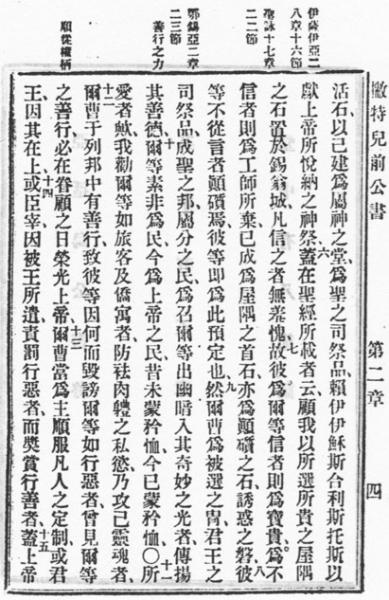 撇特兒前公書 第二章 四
伊薩伊亞二
八章十六節
聖詠百十七章
二二節
鄂錫亞二章
二三節
善行之力
順從權柄
活石以己建爲屬神之堂爲聖之司祭品賴伊伊穌斯合利斯托斯以
獻上帝所悅納之神祭六蓋在聖經所載者云顧我以所選所貴之屋隅
之石置於錫翁城凡信之者無羞愧七故彼爲爾等信者則爲寶貴爲不
信者則爲工師所棄已成爲屋隅之首石亦爲顚躓之石誘惑之磐八彼
等不從言者顚躓焉彼等卽爲此預定也九然爾曹爲被選之冑君王之
司祭品成聖之邦屬分之民爲召爾等出幽暗入其奇妙之光者傳揚
其善德十爾等素非爲民今爲上帝之民昔未蒙矜恤今已蒙矜恤〇十一所
愛者歟我勸爾等如旅客及僑寓者防祛肉體之私慾乃攻己靈魂者
十二爾曹于列邦中有善行致彼等因何而毀謗爾等如行惡者曾見爾等
之善行必在眷顧之日榮光上帝十三爾曹當爲王順服凡人之定制或君
王因其在上十四或臣宰因被王所遣責罰行惡者而奬賞行善者十五蓋上帝